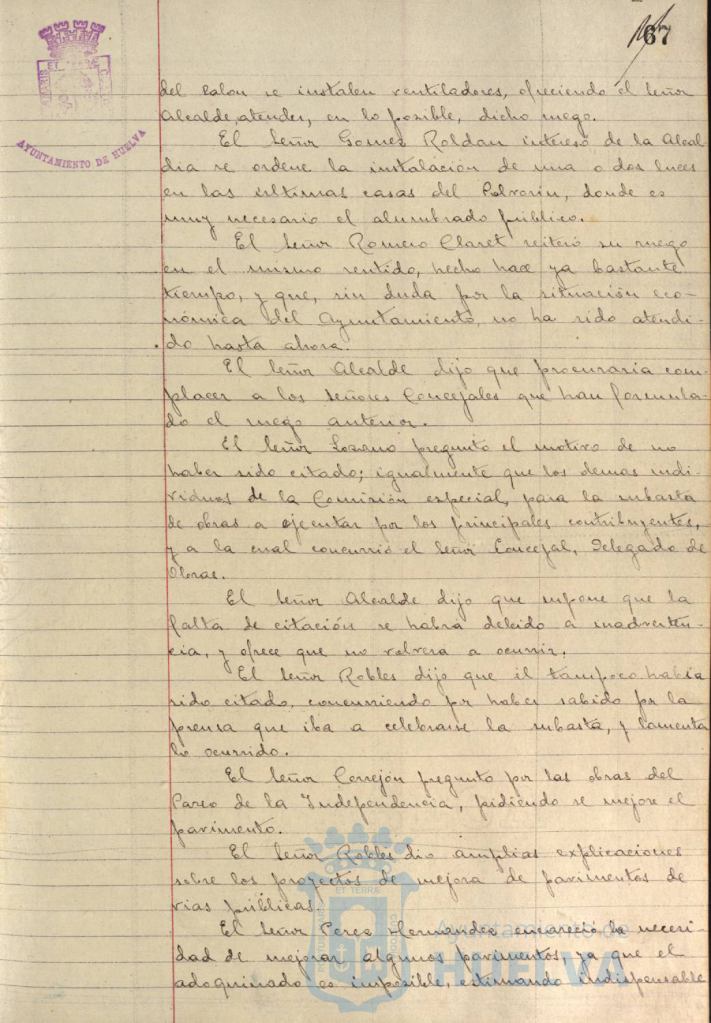 67
AYUNTAMIENTO DE HUELVA
del salon se instalen ventiladores, ofreciendo el Señor
Alcalde, atender, en lo posible, dicho ruego.
El Señor Gomez Roldan interesó de la Alcal
dia se ordene la instalación de una o dos luces
en las últimas casas del Polvorin, donde es
muy necesario el alumbrado público.
El Señor Romero Claret reiteró su ruego
en el mismo sentido, hecho hace ya bastante
tiempo, y que, sin duda por la situación eco-
nómica del Ayuntamiento, no ha sido atendi-
do hasta ahora.
El Señor Alcalde dijo que procuraria com
placer a los Señores Concejales que han formula-
do el ruego anterior.
El Señor Lozano pregunto el motivo de no
haber sido citado; igualmente que los demas indi-
viduos de la Comisión especial, para la subasta
de obras a ejecutar por los principales contribuyentes,
y a la cual concurrió el Señor Concejal, Delegado de
Obras.
El Señor Alcalde dijo que supone que la
falta de citación se habrá debido a inadverten-
cia, y ofrece que no volvera a ocurrir.
El Señor Robles dijo que él tampoco habia
sido citado, concurriendo por haber sabido por la
prensa que iba a celebrarse la subasta, y lamenta
lo ocurrido.
El Señor Cerrejón pregunto por las obras del
Paseo de la Independencia, pidiendo se mejore el
pavimento.
El Señor Robles dio amplias explicaciones
sobre los proyectos de mejora de pavimentos de
vias públicas.
El Señor Perez Hernandez encareció la necesi-
dad de mejorar algunos pavimentos, ya que el
adoquinado es imposible, estimando indispensable
Ayuntamiento de
HUELVA